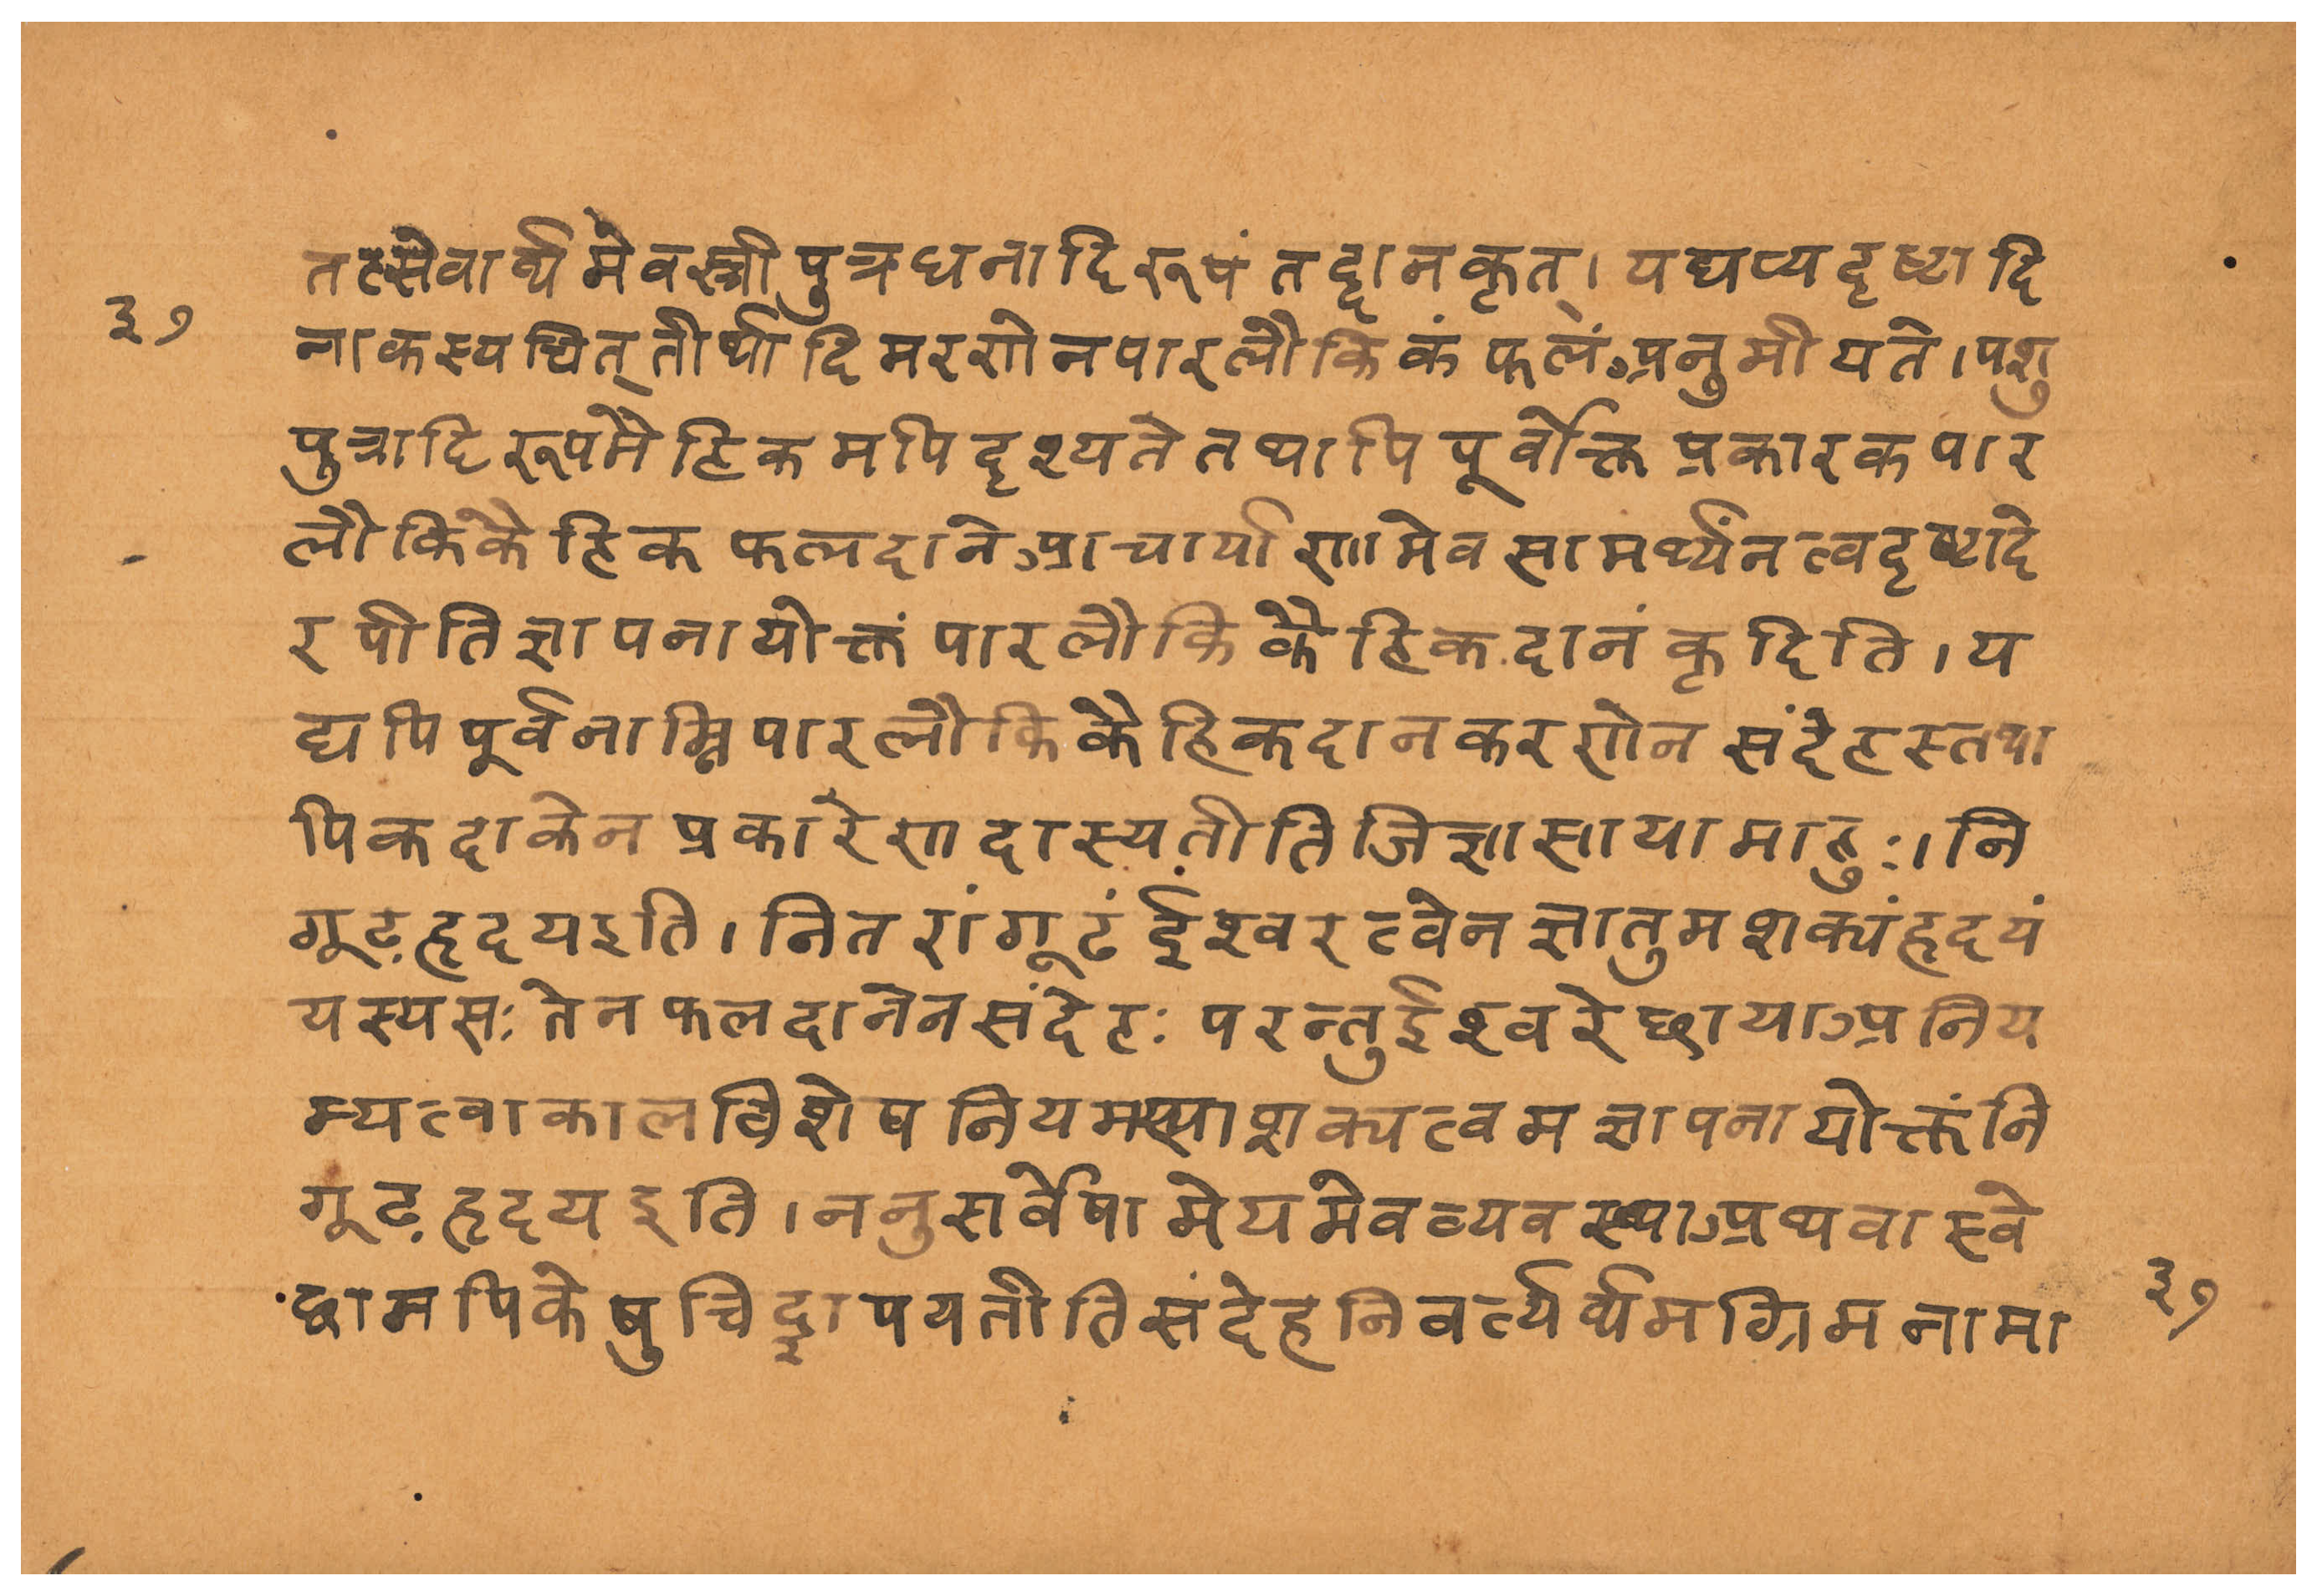 तत्सेवार्थ्यमेवस्त्रीपुत्रधनादिरूपंतद्दानकृत्।यद्यप्यदृष्टादि
३७
नाकस्यचित्तीर्थादिमरणेनपारलौकिकंफलंअनुमीयते।पशु
पुत्रादिरूपमैहिकमपिदृश्यतेतथापिपूर्वोक्तप्रकारकपार
लौकिकैहिकफलदानेआचार्याणामेवसामर्थ्यंनत्वदृष्टादे
रपीतिज्ञापनायोक्तंपारलौकिकैहिकदानंकृदिति।य
द्यपिपूर्वनाम्निपारलौकिकैहिकदानकरणेनसंदेहस्तथा
पिकदाकेनप्रकारेणदास्यतीतिजिज्ञासायामाहुः।नि
गूढ़हृदयइति।नितरांगूढंईश्वरत्वेनज्ञातुमशक्यंहृदयं
यस्यसःतेनफलदानेनसंदेहःपरन्तुईश्वरेछायाअनिय
म्यत्वाकालविशेषनियमस्याशक्यत्वमज्ञापनायोक्तंनि
गूढ़हृदयइति।ननुसर्वेषामेयमेवव्यवस्थाअथवास्वे
छामपिकेषुचिद्ज्ञापयतीतिसंदेहनिवर्त्यर्थ्यमग्रिमनामा
३७